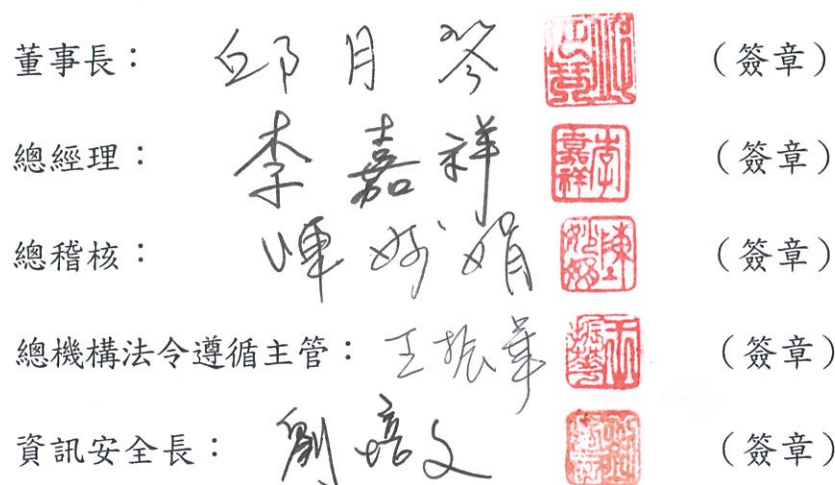 董事長： 邱月琴 （簽章）
總經理： 李嘉祥 李嘉祥 （簽章）
總稽核： 陳妙娟 陳妙娟 （簽章）
總機構法令遵循主管： 王振華 王振華 （簽章）
資訊安全長： 劉培文 （簽章）